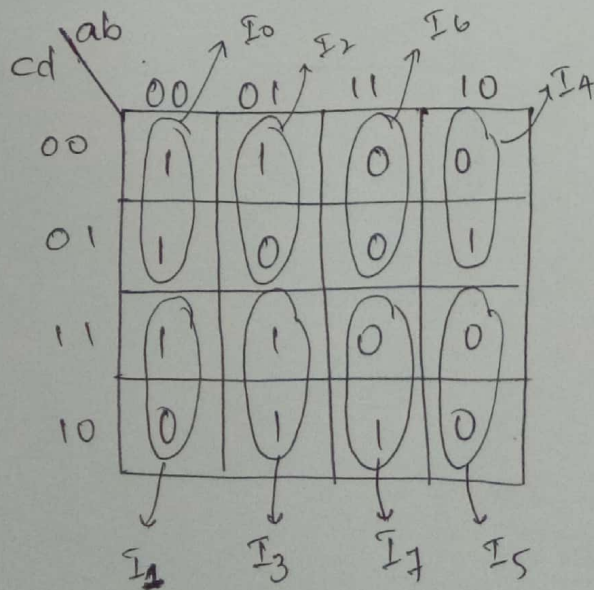 ab I0 I2 I6
cd
00 01 11 10 I4
00 1 1 0 0
01 1 0 0 1
11 1 1 0 0
10 0 1 1 0
I1 I3 I7 I5